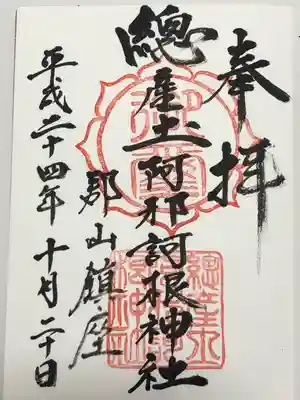 奉拝
總産土阿邪訶根神社
郡山鎮座
平成二十四年十月二十日